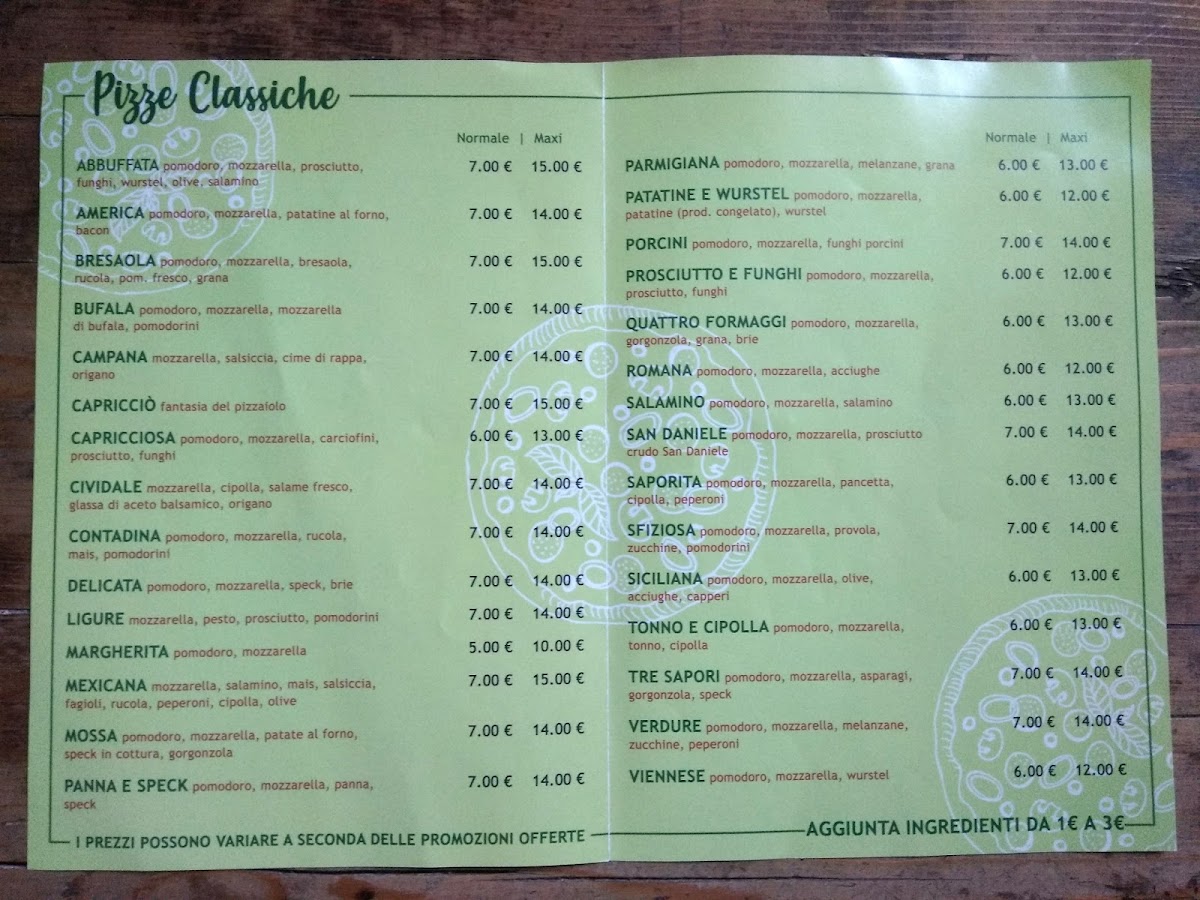 Pizze Classiche
Normale | Maxi
ABBUFFATA pomodoro, mozzarella, prosciutto, 7.00 € 15.00 €
funghi, wurstel, olive, salamino
AMERICA pomodoro, mozzarella, patatine al forno, 7.00 € 14.00 €
bacon
BRESAOLA pomodoro, mozzarella, bresaola, 7.00 € 15.00 €
rucola, pom. fresco, grana
BUFALA pomodoro, mozzarella, mozzarella 7.00 € 14.00 €
di bufala, pomodorini
CAMPANA mozzarella, salsiccia, cime di rappa, 7.00 € 14.00 €
origano
CAPRICCIÒ fantasia del pizzaiolo 7.00 € 15.00 €
CAPRICCIOSA pomodoro, mozzarella, carciofini, 6.00 € 13.00 €
prosciutto, funghi
CIVIDALE mozzarella, cipolla, salame fresco, 7.00 € 14.00 €
glassa di aceto balsamico, origano
CONTADINA pomodoro, mozzarella, rucola, 7.00 € 14.00 €
mais, pomodorini
DELICATA pomodoro, mozzarella, speck, brie 7.00 € 14.00 €
LIGURE mozzarella, pesto, prosciutto, pomodorini 7.00 € 14.00 €
MARGHERITA pomodoro, mozzarella 5.00 € 10.00 €
MEXICANA mozzarella, salamino, mais, salsiccia, 7.00 € 15.00 €
fagioli, rucola, peperoni, cipolla, olive
MOSSA pomodoro, mozzarella, patate al forno, 7.00 € 14.00 €
speck in cottura, gorgonzola
PANNA E SPECK pomodoro, mozzarella, panna, 7.00 € 14.00 €
speck
I PREZZI POSSONO VARIARE A SECONDA DELLE PROMOZIONI OFFERTE
Normale | Maxi
PARMIGIANA pomodoro, mozzarella, melanzane, grana 6.00 € 13.00 €
PATATINE E WURSTEL pomodoro, mozzarella, 6.00 € 12.00 €
patatine (prod. congelato), wurstel
PORCINI pomodoro, mozzarella, funghi porcini 7.00 € 14.00 €
PROSCIUTTO E FUNGHI pomodoro, mozzarella, 6.00 € 12.00 €
prosciutto, funghi
QUATTRO FORMAGGI pomodoro, mozzarella, 6.00 € 13.00 €
gorgonzola, grana, brie
ROMANA pomodoro, mozzarella, acciughe 6.00 € 12.00 €
SALAMINO pomodoro, mozzarella, salamino 6.00 € 13.00 €
SAN DANIELE pomodoro, mozzarella, prosciutto 7.00 € 14.00 €
crudo San Daniele
SAPORITA pomodoro, mozzarella, pancetta, 6.00 € 13.00 €
cipolla, peperoni
SFIZIOSA pomodoro, mozzarella, provola, 7.00 € 14.00 €
zucchine, pomodorini
SICILIANA pomodoro, mozzarella, olive, 6.00 € 13.00 €
acciughe, capperi
TONNO E CIPOLLA pomodoro, mozzarella, 6.00 € 13.00 €
tonno, cipolla
TRE SAPORI pomodoro, mozzarella, asparagi, 7.00 € 14.00 €
gorgonzola, speck
VERDURE pomodoro, mozzarella, melanzane, 7.00 € 14.00 €
zucchine, peperoni
VIENNESE pomodoro, mozzarella, wurstel 6.00 € 12.00 €
AGGIUNTA INGREDIENTI DA 1€ A 3€